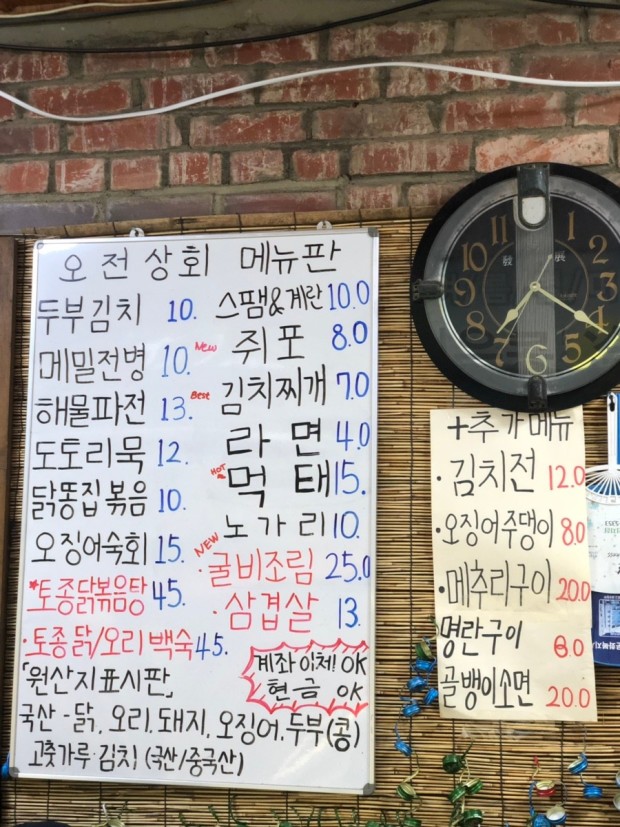 오전상회 메뉴판
두부김치 10.
메밀전병 10. New
해물파전 13. Best
도토리묵 12.
닭똥집볶음 10.
오징어숙회 15.
*토종닭볶음탕 45.
·토종닭/오리백숙 45.
스팸&계란 10.0
쥐포 8.0
김치찌개 7.0
라면 4.0
HOT 먹태 15.
노가리 10.
NEW
·굴비조림 25.0
·삼겹살 13.
계좌이체 OK
현금 OK
「원산지표시판」
국산-닭, 오리, 돼지, 오징어, 두부(콩)
고춧가루·김치 (국산/중국산)
12
1
2
3
4
5
6
7
8
9
10
11
+추가메뉴
·김치전 12.0
·오징어주댕이 8.0
·메추리구이 20.0
명란구이 8.0
골뱅이소면 20.0